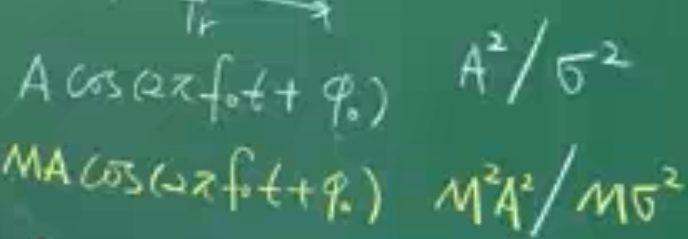 Tr
A cos(2πf₀t + φ₀) A²/σ²
MA cos(2πf₀t + φ₀) M²A²/Mσ²